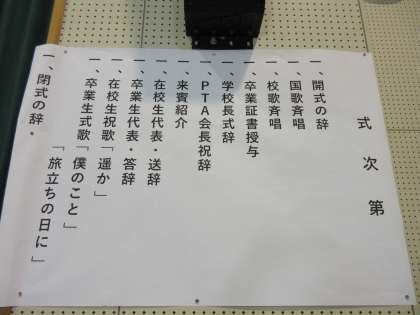 式次第
一、開式の辞
一、国歌斉唱
一、校歌斉唱
一、卒業証書授与
一、学校長式辞
一、PTA会長祝辞
一、来賓紹介
一、在校生代表・送辞
一、卒業生代表・答辞
一、在校生祝歌「遥か」
一、卒業生式歌「僕のこと」
「旅立ちの日に」
一、閉式の辞.